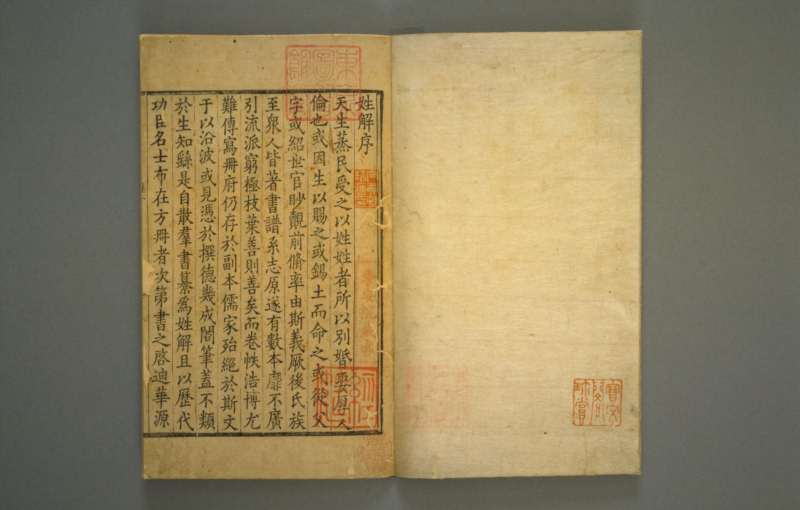 姓解序
天生蒸民受之以姓姓者所以別婚娶厚人
倫也或因生以賜之或錫土而命之或從父
字或紹世官眇覿前脩率由斯義厥後氏族
至衆人皆著書譜系志原遂有數本靡不廣
引流派窮極枝葉善則善矣而卷帙浩博尤
難傳寫冊府仍存於副本儒家殆絕於斯文
于以沿波或見憑於撰德幾成閣筆蓋不類
於生知繇是自散羣書纂為姓解且以歷代
功臣名士布在方冊者次第書之啓迪華源